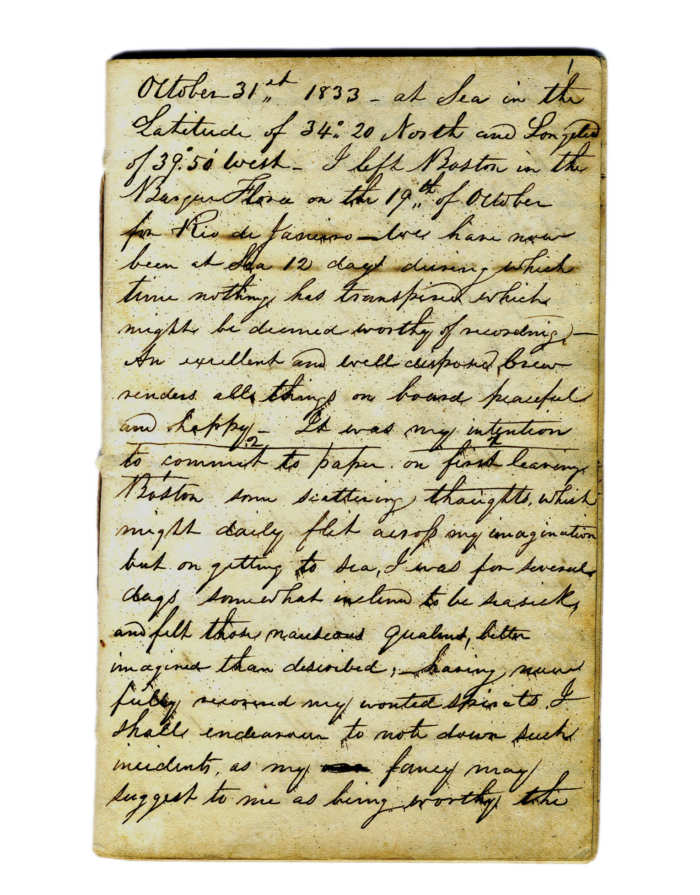 1
October 31st 1833 - at Sea in the
Latitude of 34° 20 North and Longitud
of 39°. 50' West - I left Boston in the
Barque Flora on the 19th of October
for Rio de Janeiro - We have now
been at Sea 12 days during which
time nothing has transpired which
might be deemed worthy of recording, -
An excellent and well disposed Crew
renders all things on board peaceful
and happy - It was my intention
to commit to paper on first leaving
2 2
1
Boston some scattering thoughts, which
might daily flit across my imagination
but on getting to Sea, I was for several
days somewhat inclined to be seasick,
and felt those nauseous qualms, better
imagined than described; - having now
fully recovered my wonted spirits, I
shall endeavour to note down such
incidents, as my fancy may
suggest to me as being worthy the